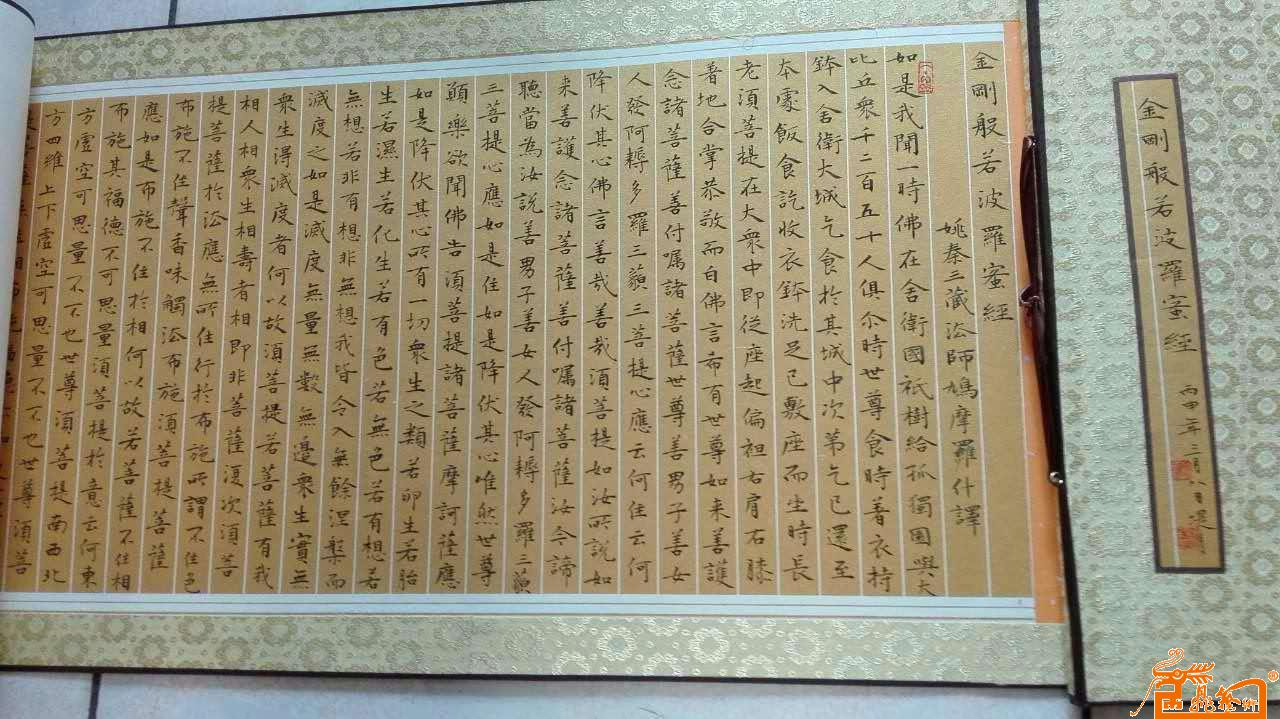 金剛般若波羅蜜經
丙申年三月八日
金剛般若波羅蜜經
姚秦三藏法師鳩摩羅什譯
如是我聞一時佛在舍衛國祇樹給孤獨園與大
比丘衆千二百五十人俱尒時世尊食時著衣持
鉢入舍衛大城乞食於其城中次第乞已還至
本處飯食訖收衣鉢洗足已敷座而坐時長
老湏菩提在大衆中即從座起偏袒右肩右膝
著地合掌恭敬而白佛言希有世尊如来善護
念諸菩薩善付嘱諸菩薩世尊善男子善女
人發阿耨多羅三藐三菩提心應云何住云何
降伏其心佛言善哉善哉湏菩提如汝所說如
来善護念諸菩薩善付嘱諸菩薩汝今諦
聽當為汝說善男子善女人發阿耨多羅三藐
三菩提心應如是住如是降伏其心唯然世尊
願樂欲聞佛告湏菩提諸菩薩摩訶薩應
如是降伏其心所有一切衆生之類若卵生若胎
生若濕生若化生若有色若無色若有想若
無想若非有想非無想我皆令入無餘涅槃而
滅度之如是滅度無量無數無邊衆生實無
衆生得滅度者何以故湏菩提若菩薩有我
相人相衆生相壽者相即非菩薩復次湏菩
提菩薩於法應無所住行於布施所謂不住色
布施不住聲香味觸法布施湏菩提菩薩
應如是布施不住於相何以故若菩薩不住相
布施其福德不可思量湏菩提於意云何東
方虛空可思量不不也世尊湏菩提南西北
方四維上下虛空可思量不不也世尊湏菩